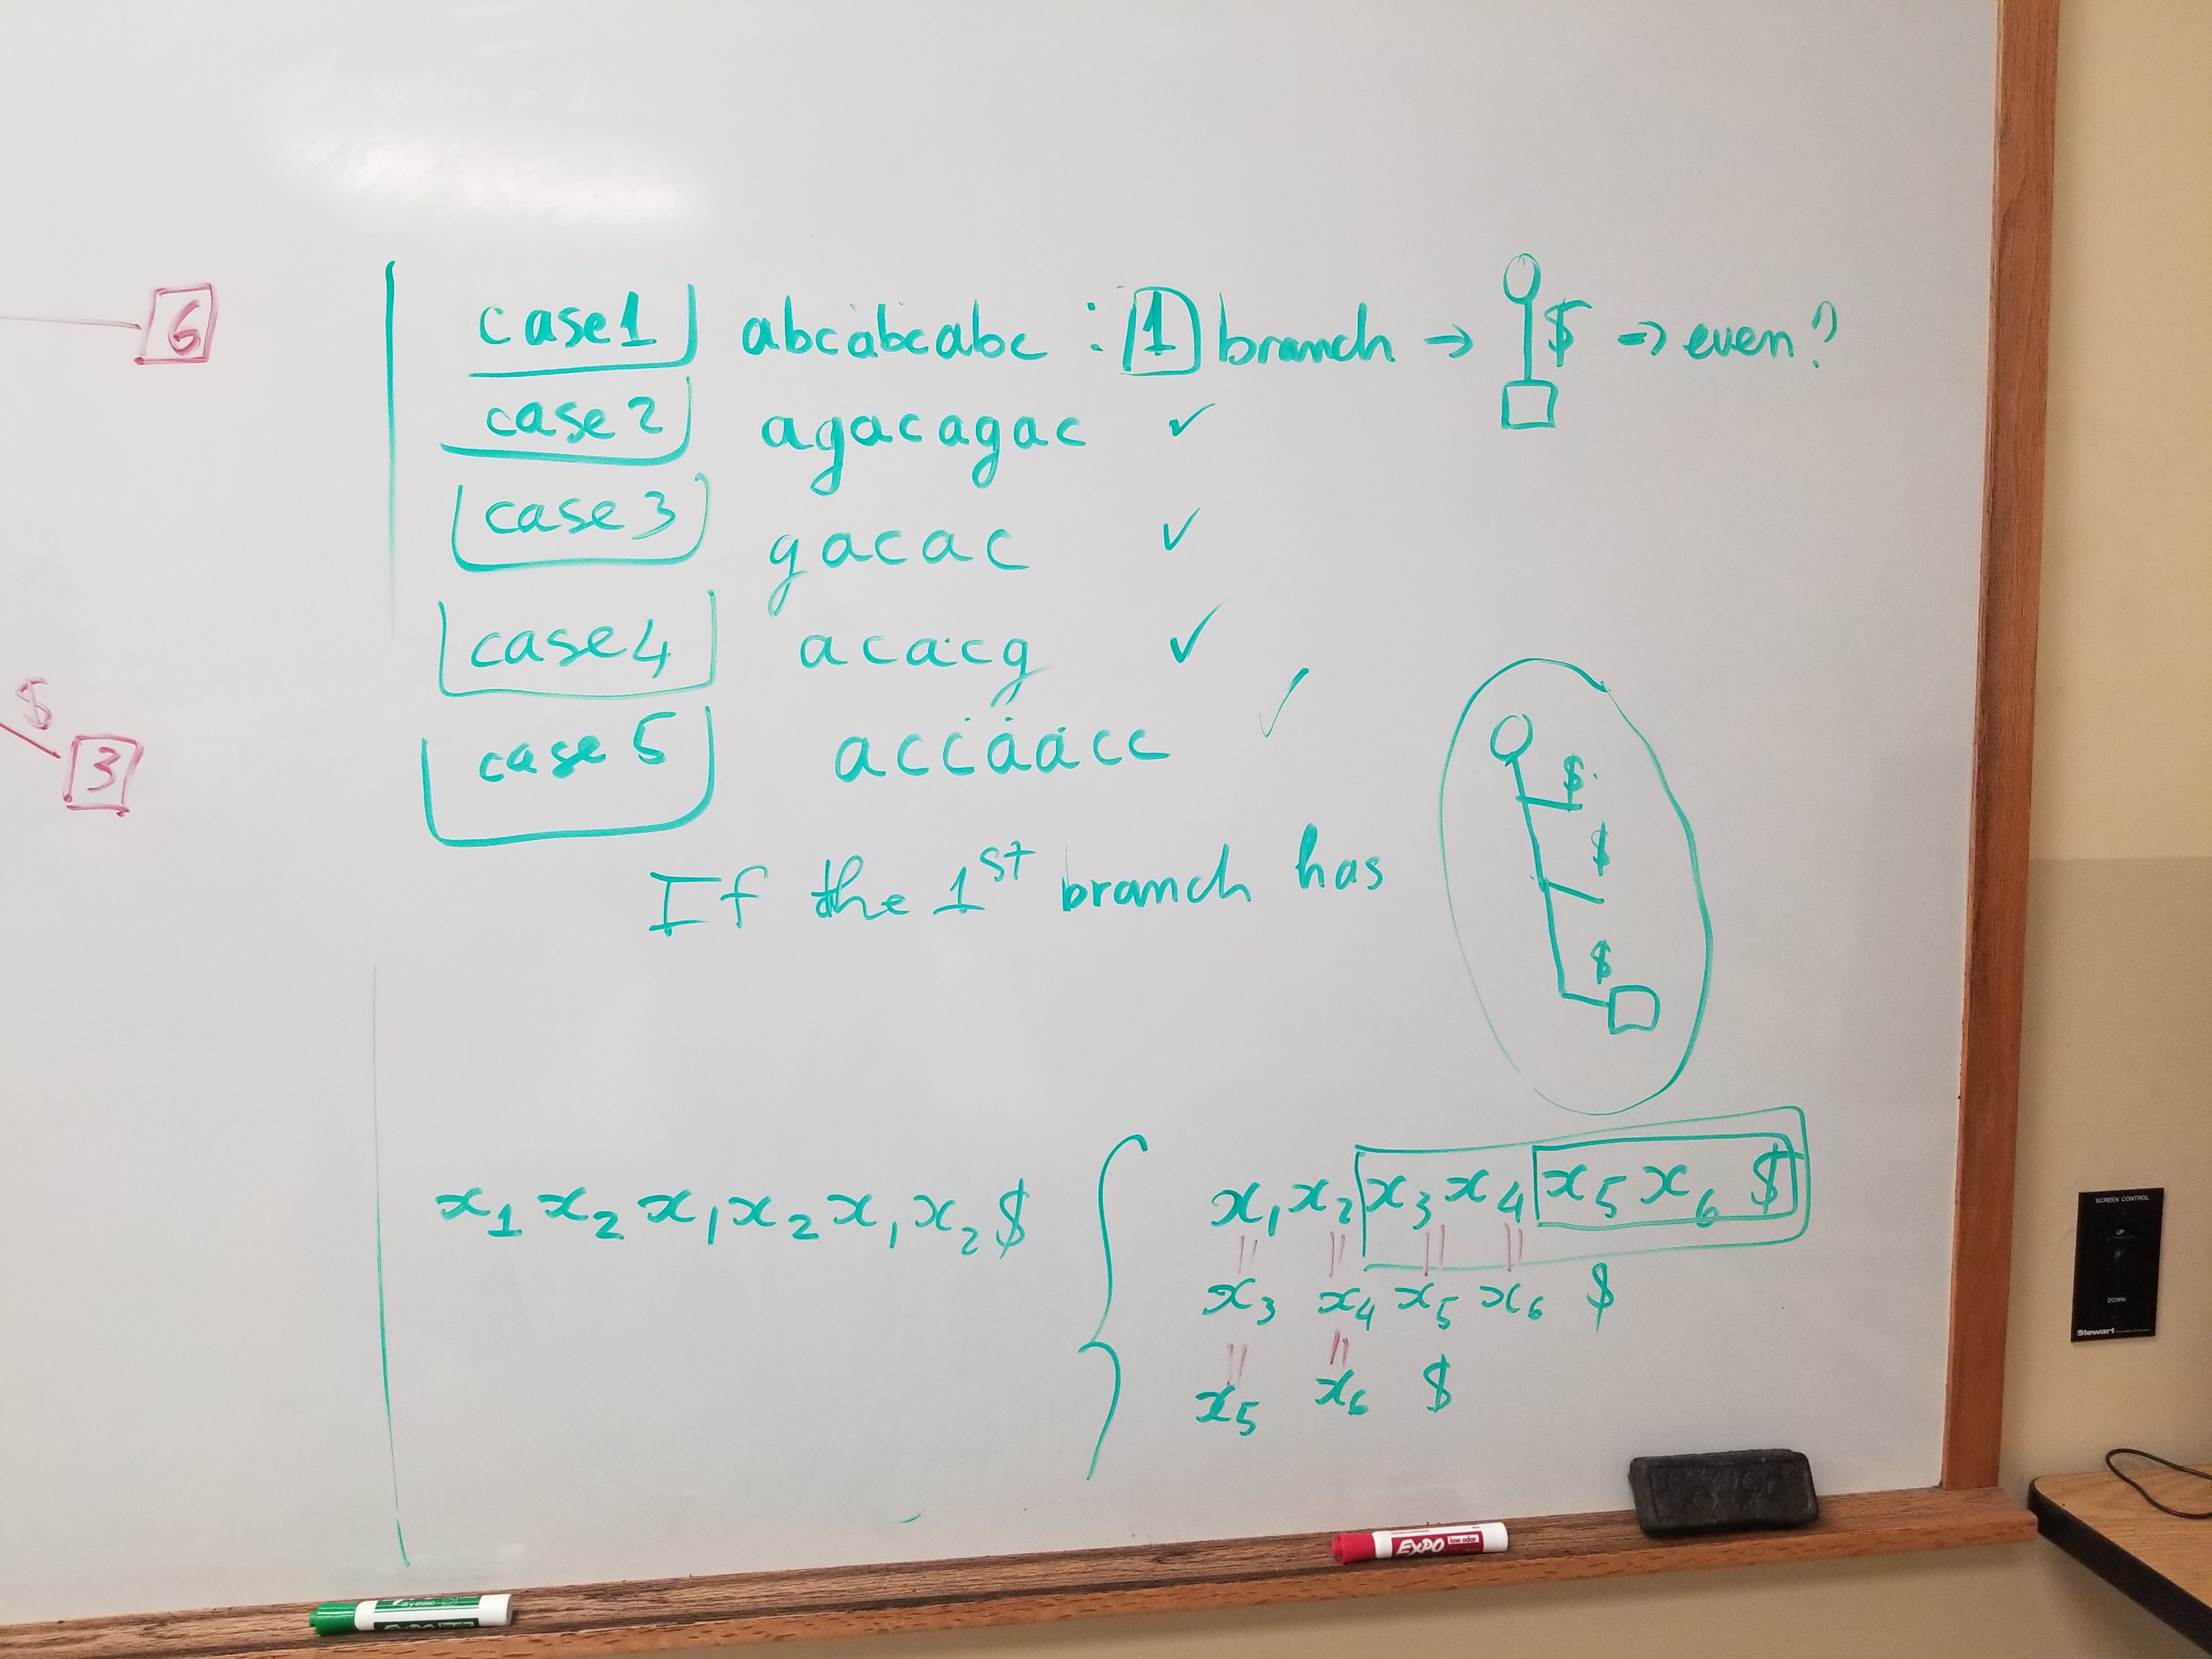 6
case1 abcabcabc : 1 branch → $ ⇒ even?
case 2 agacagac ✓
case 3 gacac ✓
$
case4 acacg ✓
3
case 5 accaacc ✓
$
$
If the 1st branch has
$
x1 x2 x1 x2 x1 x2 $
x1 x2 x3 x4 x5 x6 $
|| || || ||
x3 x4 x5 x6 $
|| ||
x5 x6 $
SCREEN CONTROL
UP
DOWN
Stewart
EXPO low odor
EXPO